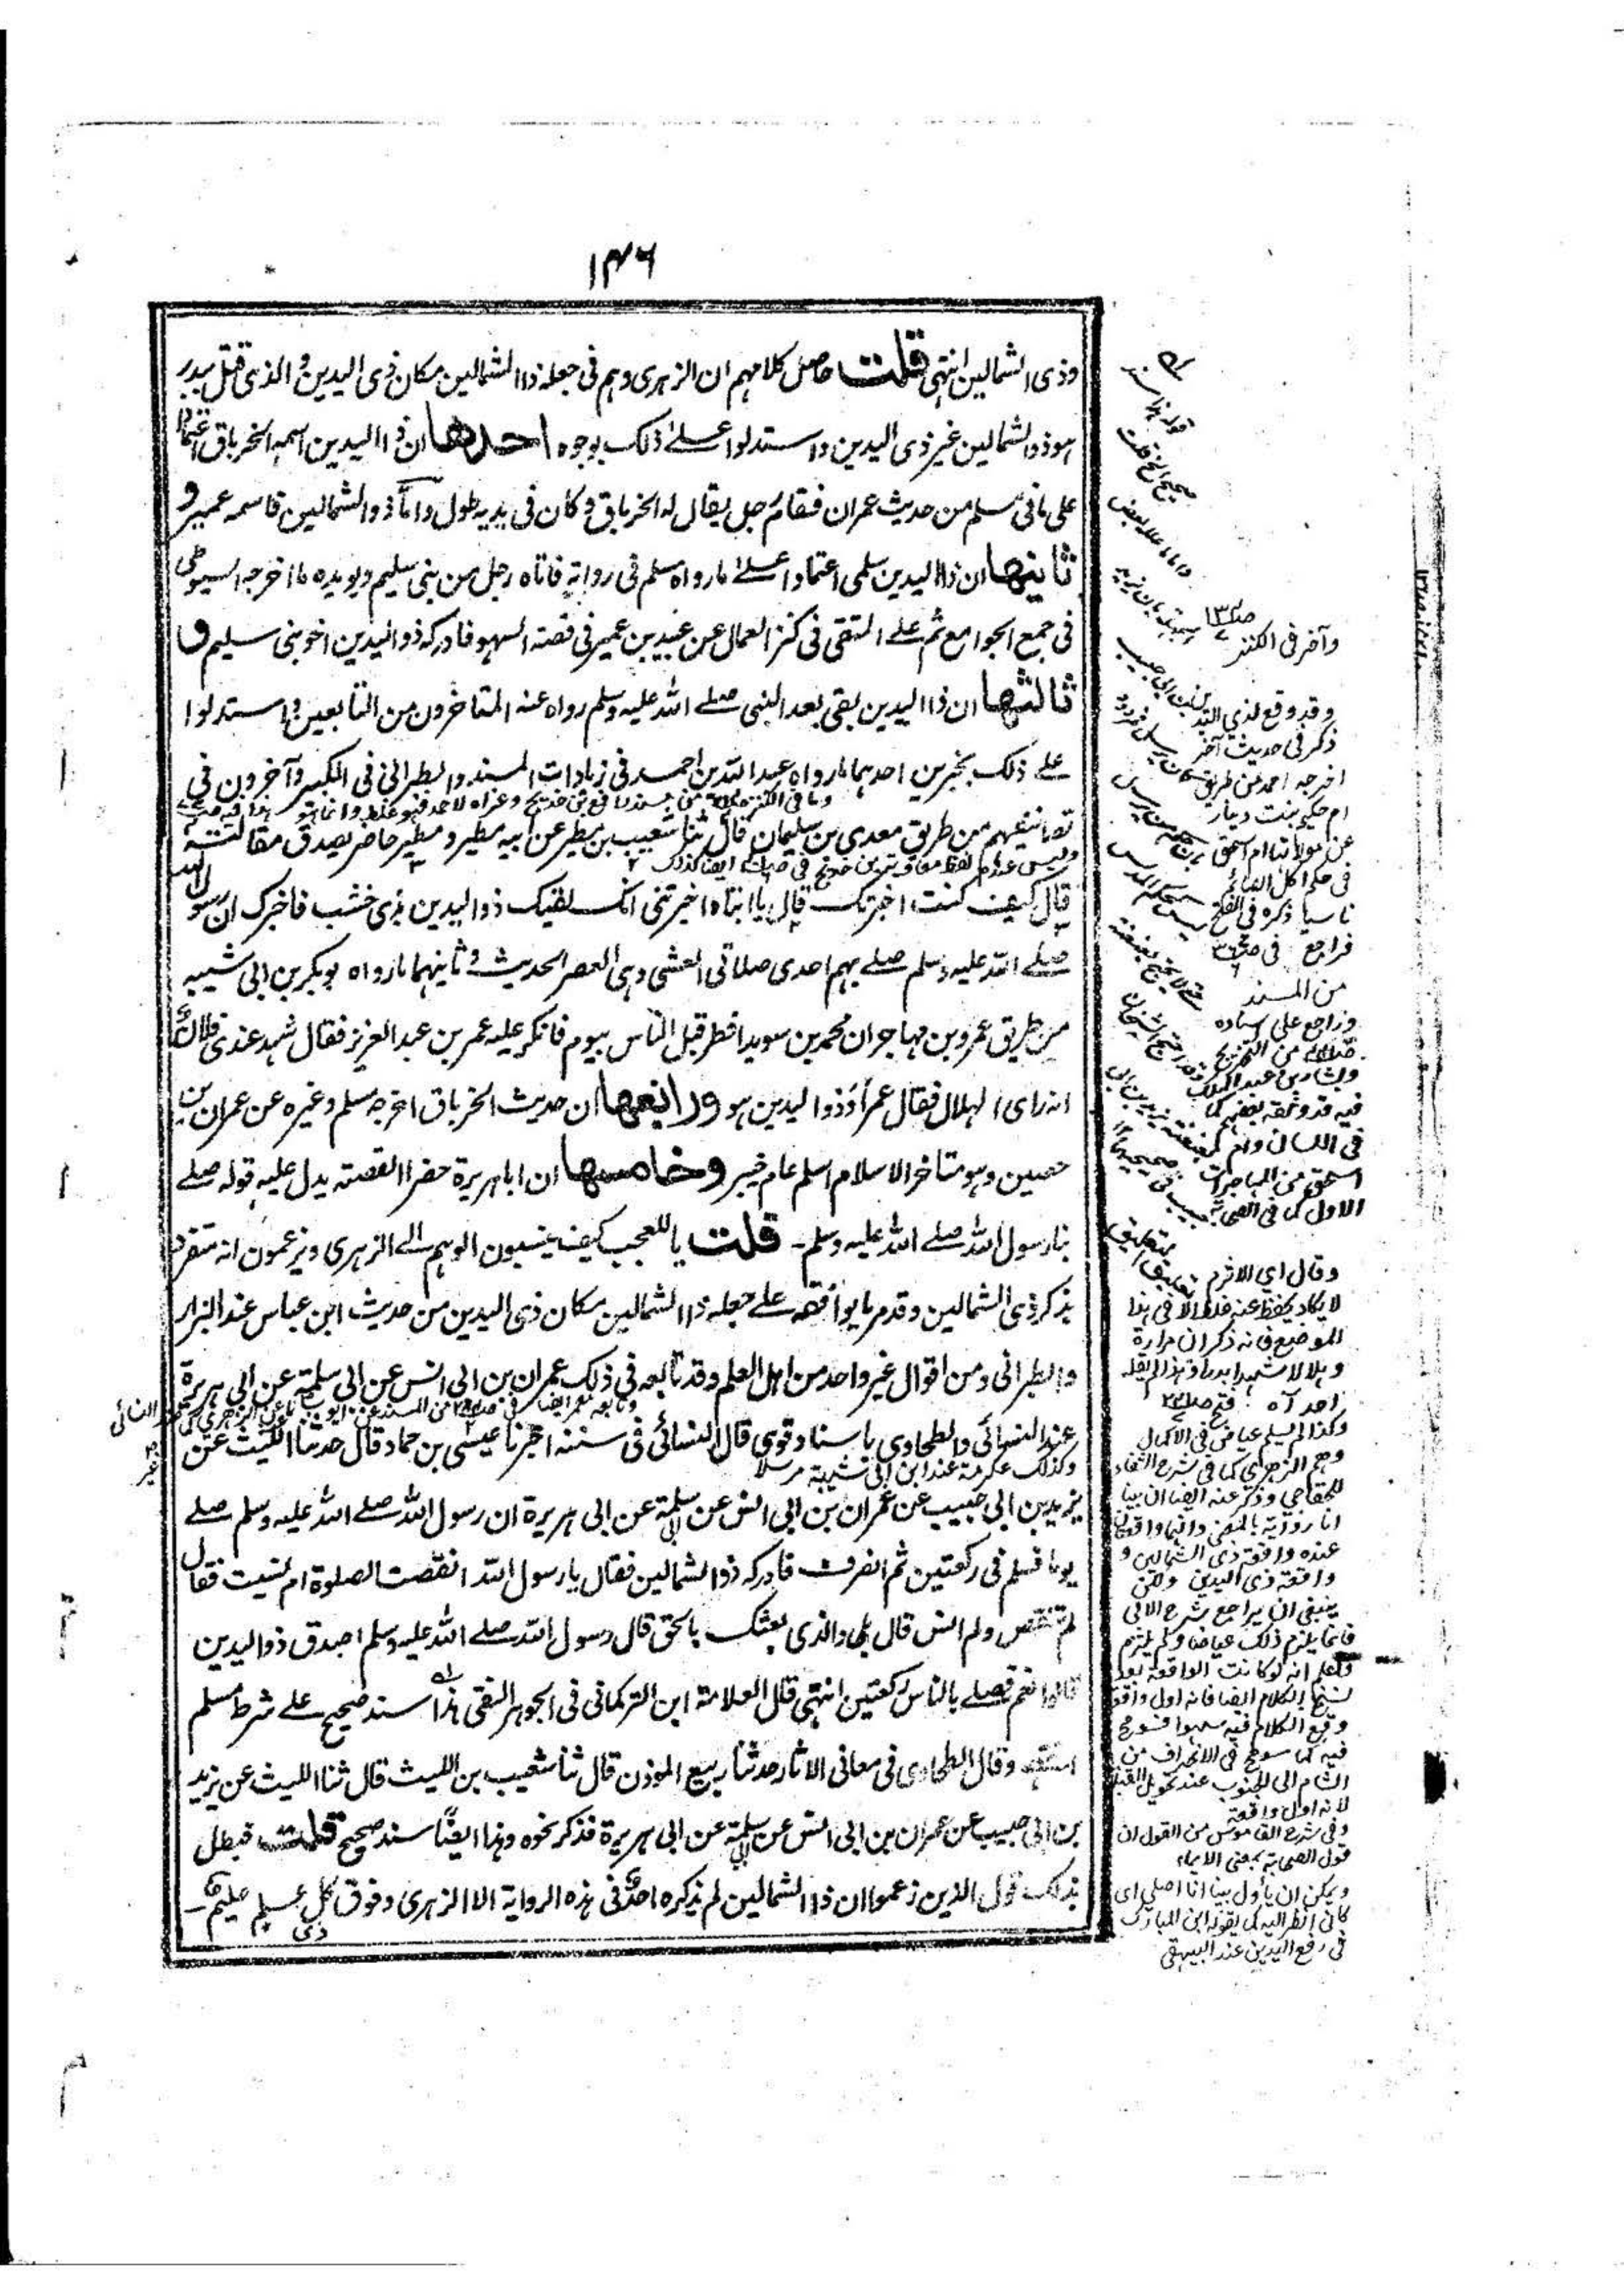 ١٣٦
وذى الشمالين انتهى قلت حاصل كلامهم ان الزهرى وهم فى جعله ذا الشمالين مكان ذى اليدين و الذى قتل ببدر
هو ذو الشمالين غير ذى اليدين واستدلوا على ذلك بوجوه احدها ان ذا اليدين اسمه الخرباق اعتمادا
على ما فى مسلم من حديث عمران فقام رجل يقال له الخرباق وكان فى يديه طول واما ذو الشمالين فاسمه عمير و
ثانيها ان ذا اليدين سلمى اعتمادا على ما رواه مسلم فى رواية فاتاه رجل من بنى سليم ويويده ما اخرجه السيوطى
فى جمع الجوامع ثم على المتقى فى كنز العمال عن عبيد بن عمير فى قصة السهو فادركه ذو اليدين اخو بنى سليم و
ثالثها ان ذا اليدين بقى بعد النبى صلى الله عليه وسلم رواه عنه المتاخرون من التابعين واستدلوا
على ذلك بخبرين احدهما ما رواه عبد الله بن احمد فى زيادات المسند والطبرانى فى الكبير وآخرون فى
تصانيفهم من طريق معدى بن سليمان قال ثنا شعيب بن مطير عن ابيه مطير ومطير حاضر يصدق مقالته
قال كيف كنت اخبرتك قال يا ابتاه اخبرتنى انك لقيك ذو اليدين بذى خشب فاخبرك ان رسول الله
صلى الله عليه وسلم صلى بهم احدى صلاتى العشى وهى العصر الحديث وثانيهما ما رواه بوبكر بن ابى شيبه
من طريق عمرو بن مهاجر ان محمد بن سويد افطر قبل الناس بيوم فانكر عليه عمر بن عبد العزيز فقال شهد عندى فلان
انه راى الهلال فقال عمر أو ذو اليدين هو ورابعها ان حديث الخرباق اخرجه مسلم وغيره عن عمران بن
حصين وهو متاخر الاسلام اسلم عام خيبر وخامسها ان اباهريرة حضر القصة يدل عليه قوله صلى
بنا رسول الله صلى الله عليه وسلم - قلت يا للعجب كيف ينسبون الوهم الى الزهرى ويزعمون انه متفرد
بذكر ذى الشمالين وقد مر ما يوافقه على جعله ذا الشمالين مكان ذى اليدين من حديث ابن عباس عند البزار
والطبرانى ومن اقوال غير واحد من اهل العلم وقد تابعه فى ذلك عمران بن ابى انس عن ابى سلمة عن ابى هريرة
عند النسائى والطحاوى باسناد قوى قال النسائى فى سننه اخبرنا عيسى بن حماد قال حدثنا الليث عن
وكذلك عكرمة عند ابن ابى شيبة مرسلا
يزيد بن ابى حبيب عن عمران بن ابى انس عن ابى سلمة عن ابى هريرة ان رسول الله صلى الله عليه وسلم صلى
يوما فسلم فى ركعتين ثم انصرف فادركه ذو الشمالين فقال يا رسول الله انقصت الصلوة ام نسيت فقال
لم تنقص ولم انس قال بلى والذى بعثك بالحق قال رسول الله صلى الله عليه وسلم اصدق ذو اليدين
قالوا نعم فصلى بالناس ركعتين انتهى قال العلامة ابن التركمانى فى الجوهر النقى هذا سند صحيح على شرط مسلم
انتهى وقال الطحاوى فى معانى الاثار حدثنا ربيع الموذن قال ثنا شعيب بن الليث قال ثنا الليث عن يزيد
بن ابى حبيب عن عمران بن ابى انس عن ابى سلمة عن ابى هريرة فذكر نحوه وهذا ايضًا سند صحيح قلت فبطل
بذلك قول الذين زعموا ان ذا الشمالين لم يذكره احد فى هذه الرواية الا الزهرى وفوق كل ذى علم عليم -
وآخر فى الكنز
وقد وقع لذي اليدين
ذكر فى حديث آخر
اخرجه احمد من طريق
ام حكيم بنت دينار
عن مولاتها ام اسحق
فى حكم اكل الصائم
ناسيا ذكره فى الفتح
فراجع
من المسند
وراجع على اسناده
من التخريج
وبشار بن عبد الملك
فيه قد وثقه بعضهم كما
فى اللسان وام
اسحق من المهاجرات
الاول كما فى الصحابة
وقال اي الاثرم
لا يكاد يحفظ عنه غلط الا فى هذا
الموضع فانه ذكر ان مرارة
وهلالا شهدا بدرا وهذا لم يقله
احد آه فتح
وكذا لم يسلم عياض فى الاكمال
وهم الزهري كما فى شرح الشفاء
للخفاجي وذكر عنه ايضا ان بينا
انا رواية بالمعنى وانها واقعتان
عنده واقعة ذى الشمالين و
واقعة ذى اليدين ولكن
ينبغى ان يراجع شرح الابى
فانما يلزم ذلك عياضا ولم يلتزم
واعلم انه لو كانت الواقعة بعد
نسخ الكلام ايضا فانه اول واقعة
وقع الكلام فيه سهوا فسومح
فيه كما سومح فى الانحراف من
الشام الى الجنوب عند تحويل القبلة
لانه اول واقعة
وفى شرح القاموس من القول ان
قول الصحابة بمعنى الايماء
ويمكن ان يأول بينا انا اصلي اى
كانى انظر اليه كما يقوله ابن المبارك
فى رفع اليدين عند البيهقى